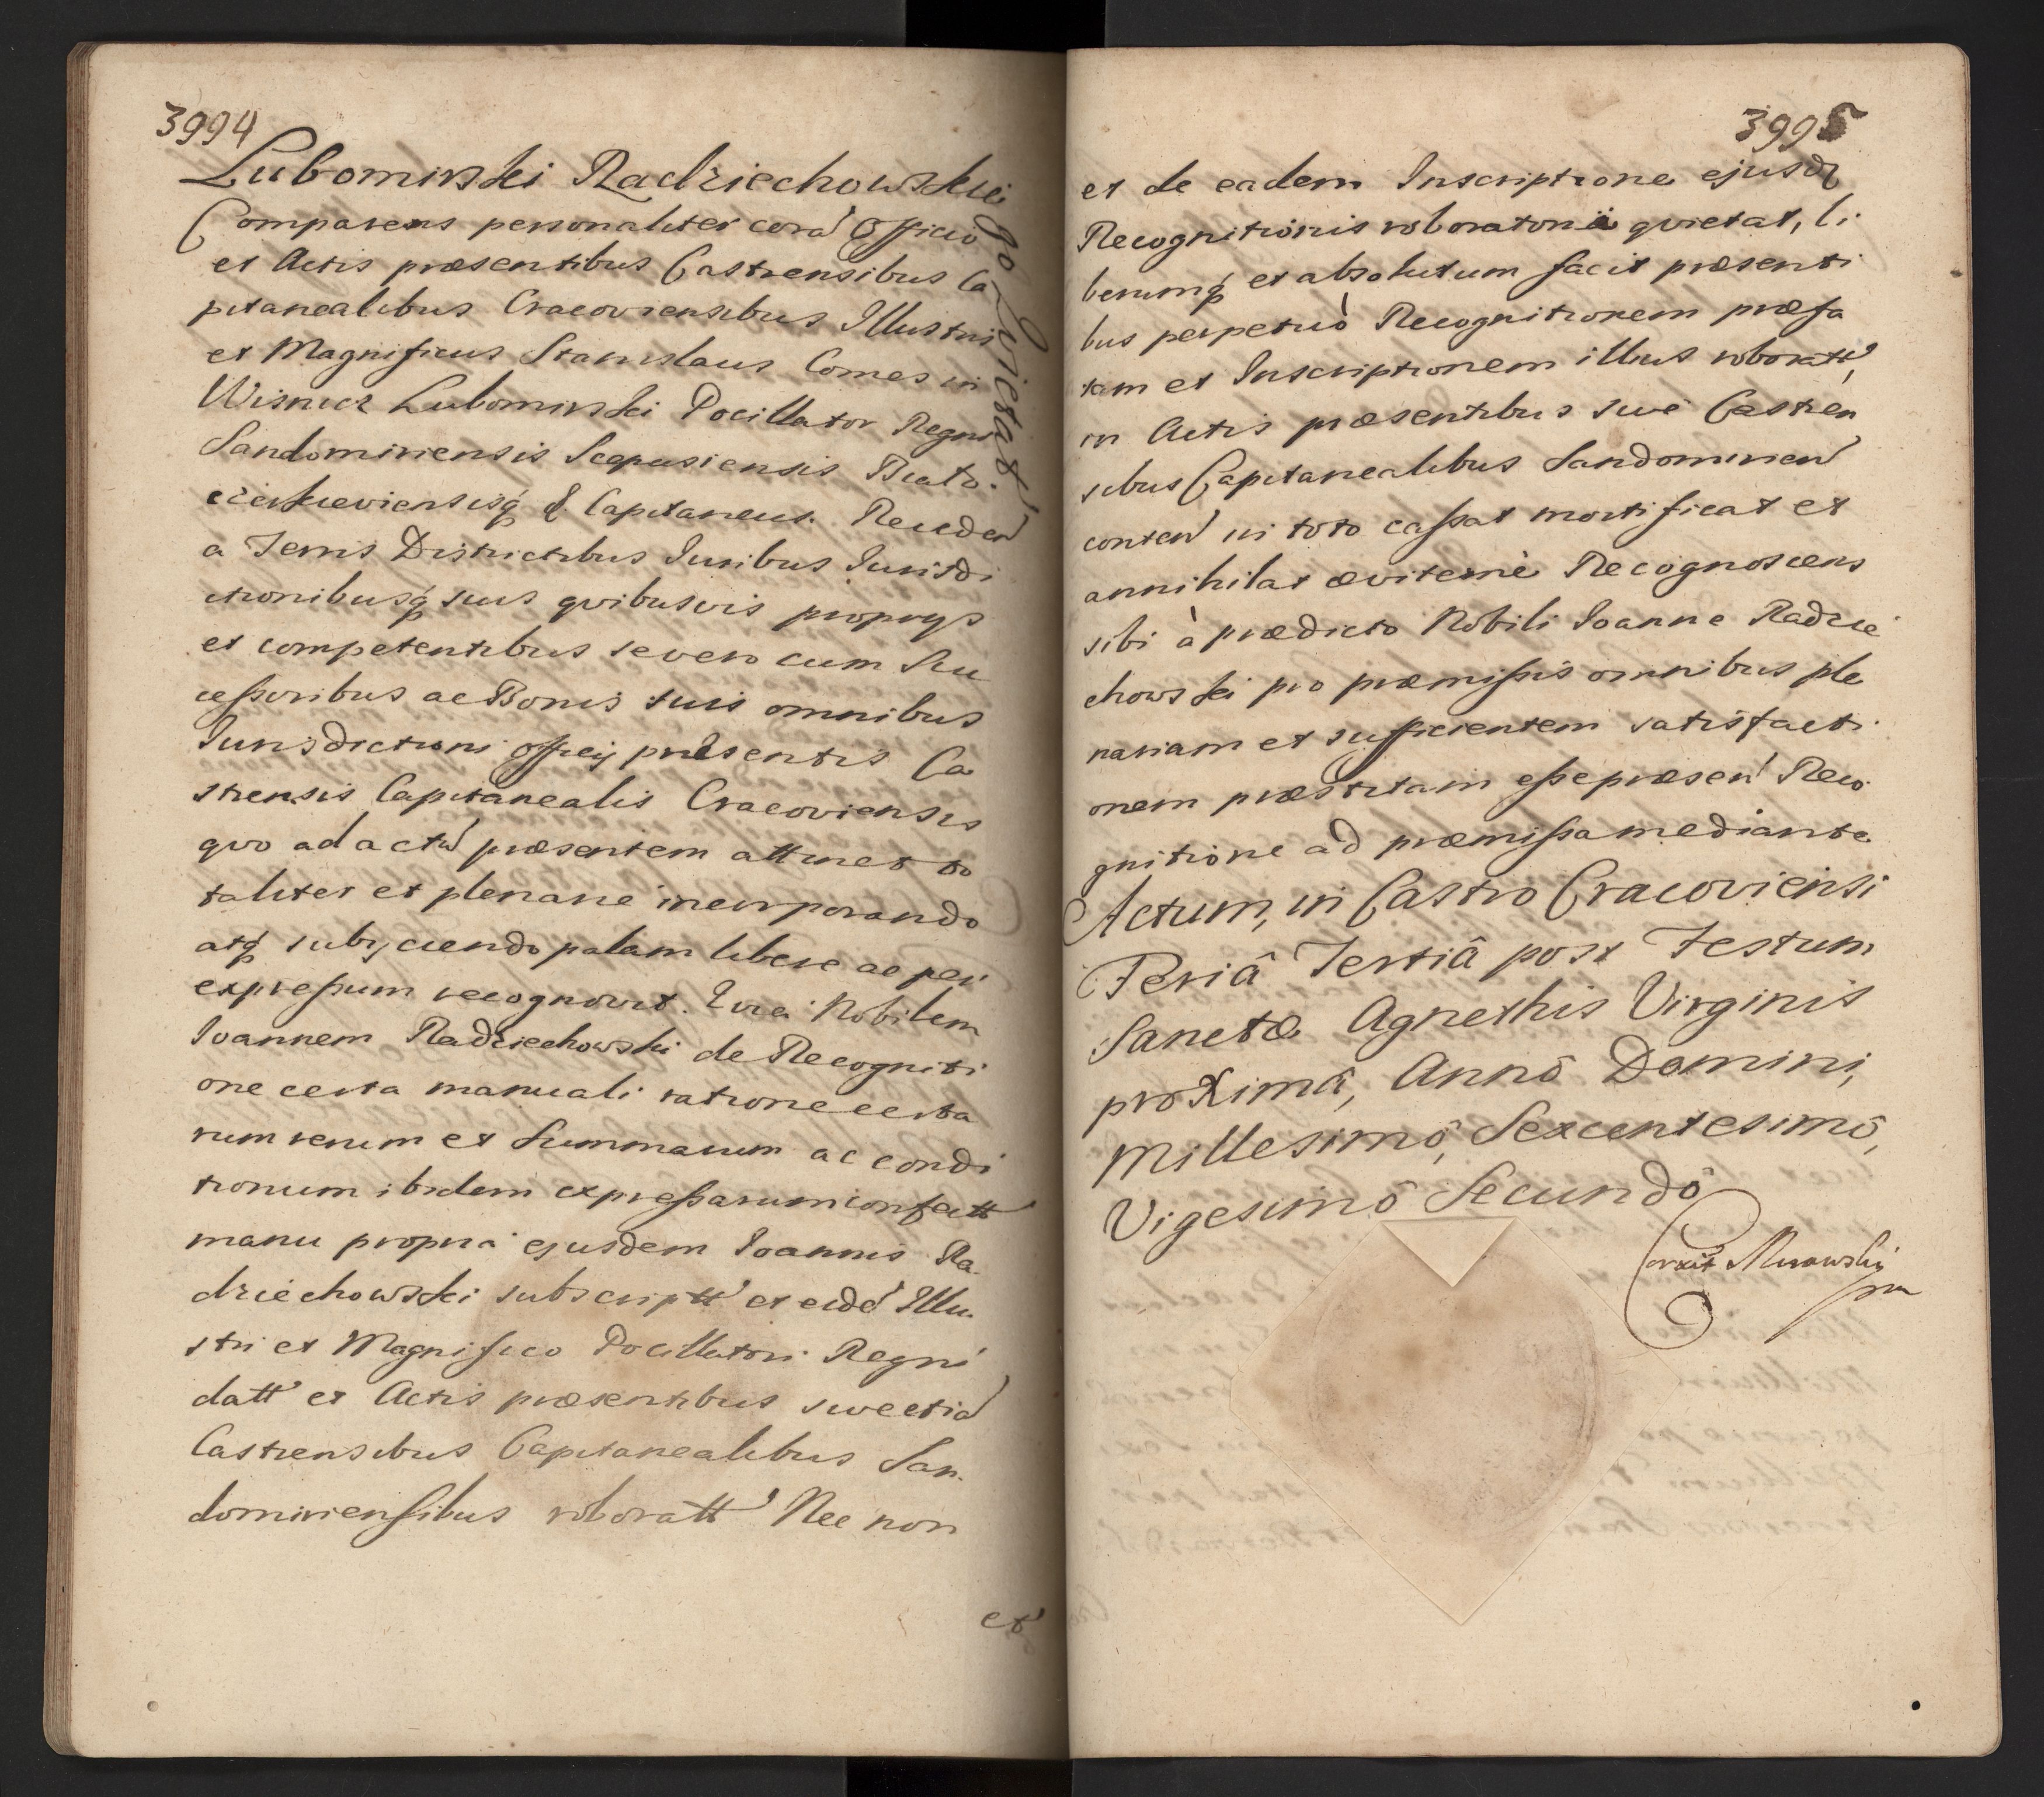 3994
Lubomirski Radziechowskie
go Qvietat
Comparens personaliter corā Officio
et Actis præsentibus Castrensibus Ca
pitanealibus Cracoviensibus Illustris
et Magnificus Stanislaus Comes in
Wisnicz Lubomirski Pocillator Regni
Sandomiriensis Scepusiensis Biało
Capitaneus. Receden̄
a Terris Districtibus Juribus Jurisdi
ctionibusq́ suis qvibusvis proprys
et competentibus se vero cum Suc
ceßoribus ac Bonis suis omnibus
Jurisdictioni Officij præsentis Ca
strensis Capitanealis Cracoviensis
qvo ad actū præsentem attinet to
taliter et plenarie incorporando
atq́ subyciendo palam libere ac per
expreßum recognovit. Qvia Nobilem
Joannem Radziechowski de Recogniti
one certa manuali ratione certa
rum rerum et Summarum ac condi
tionum ibidem expreßarum confectt
manu propria ejusdem Joannis Ra
dziechowski subscriptt' et eidē Illu
stri et Magnifico Pocillatori Regni
datt' et Actis præsentibus sive etiā
Castrensibus Capitanealibus San
domiriensibus roboratt' Nec non
et
3995
et de eadem Inscriptione ejusd
Recognitionis roboratoria qvietat, li
berumq́ et absolutum facit præsenti
bus perpetuò Recognitionem præfa
tam et Inscriptionem illius roboratt'
in Actis præsentibus sive Castren
sibus Capitanealibus Sandomirien̄
conten̄ in toto caßat mortificat et
annihilat æviternè Recognoscens
sibi à prædicto Nobili Joanne Radzie
chowski pro præmißis omnibus ple
nariam et sufficientem satisfacti
onem præstitam eße præsen̄ Reco
gnitione ad præmißa mediante
Actum, in Castro Cracoviensi
Feriâ Tertiâ post Festum
Sanctæ Agnethis Virginis
proximâ, Annô Domini,
Millesimô, Sexcentesimô,
Vigesimô Secundô